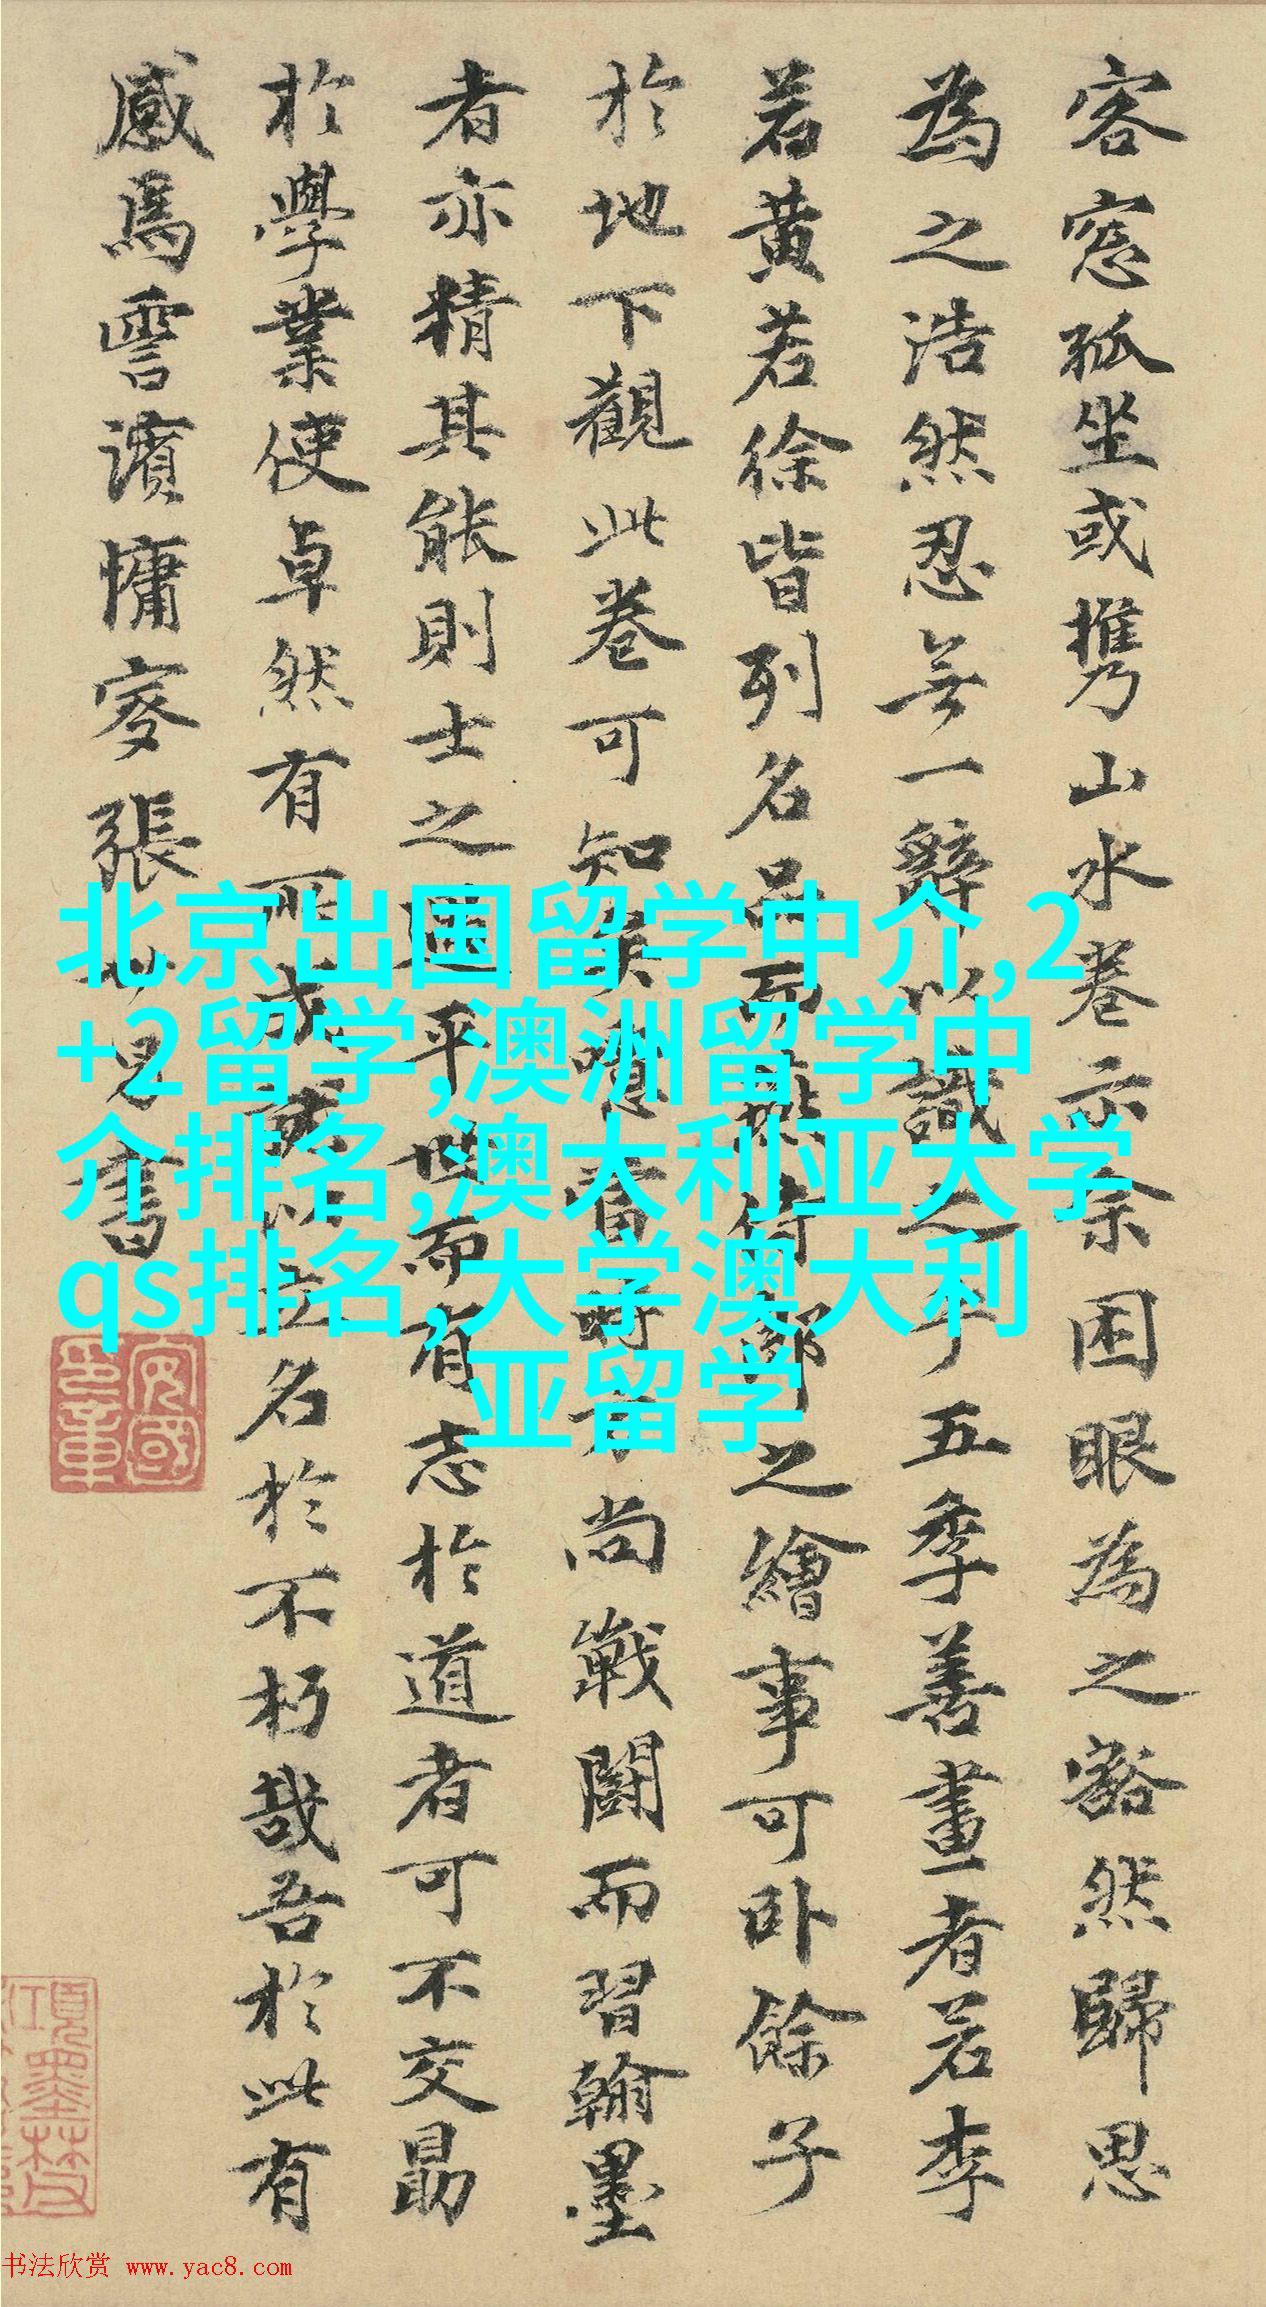 客窓孤坐或携山水卷示余困眼為之豁然歸思
為之浩然忍無一辭以識之乎五季善畫者若李
若黄若徐皆列名品而燕侍郎之繪事可卧餘子
於地下觀此卷可知矣噫當時方尚戰鬪而習翰墨
者亦精其能則士之遇乎世而有志於道者可不交勗
於學業使卓然有所成就以立名於不朽哉吾於此有
感焉霅濱慵叟張書
北京出国留学中介,2
+2留学,澳洲留学中
介排名,澳大利亚大学
qs排名,大学澳大利
亚留学
书法欣赏 www.yac8.com